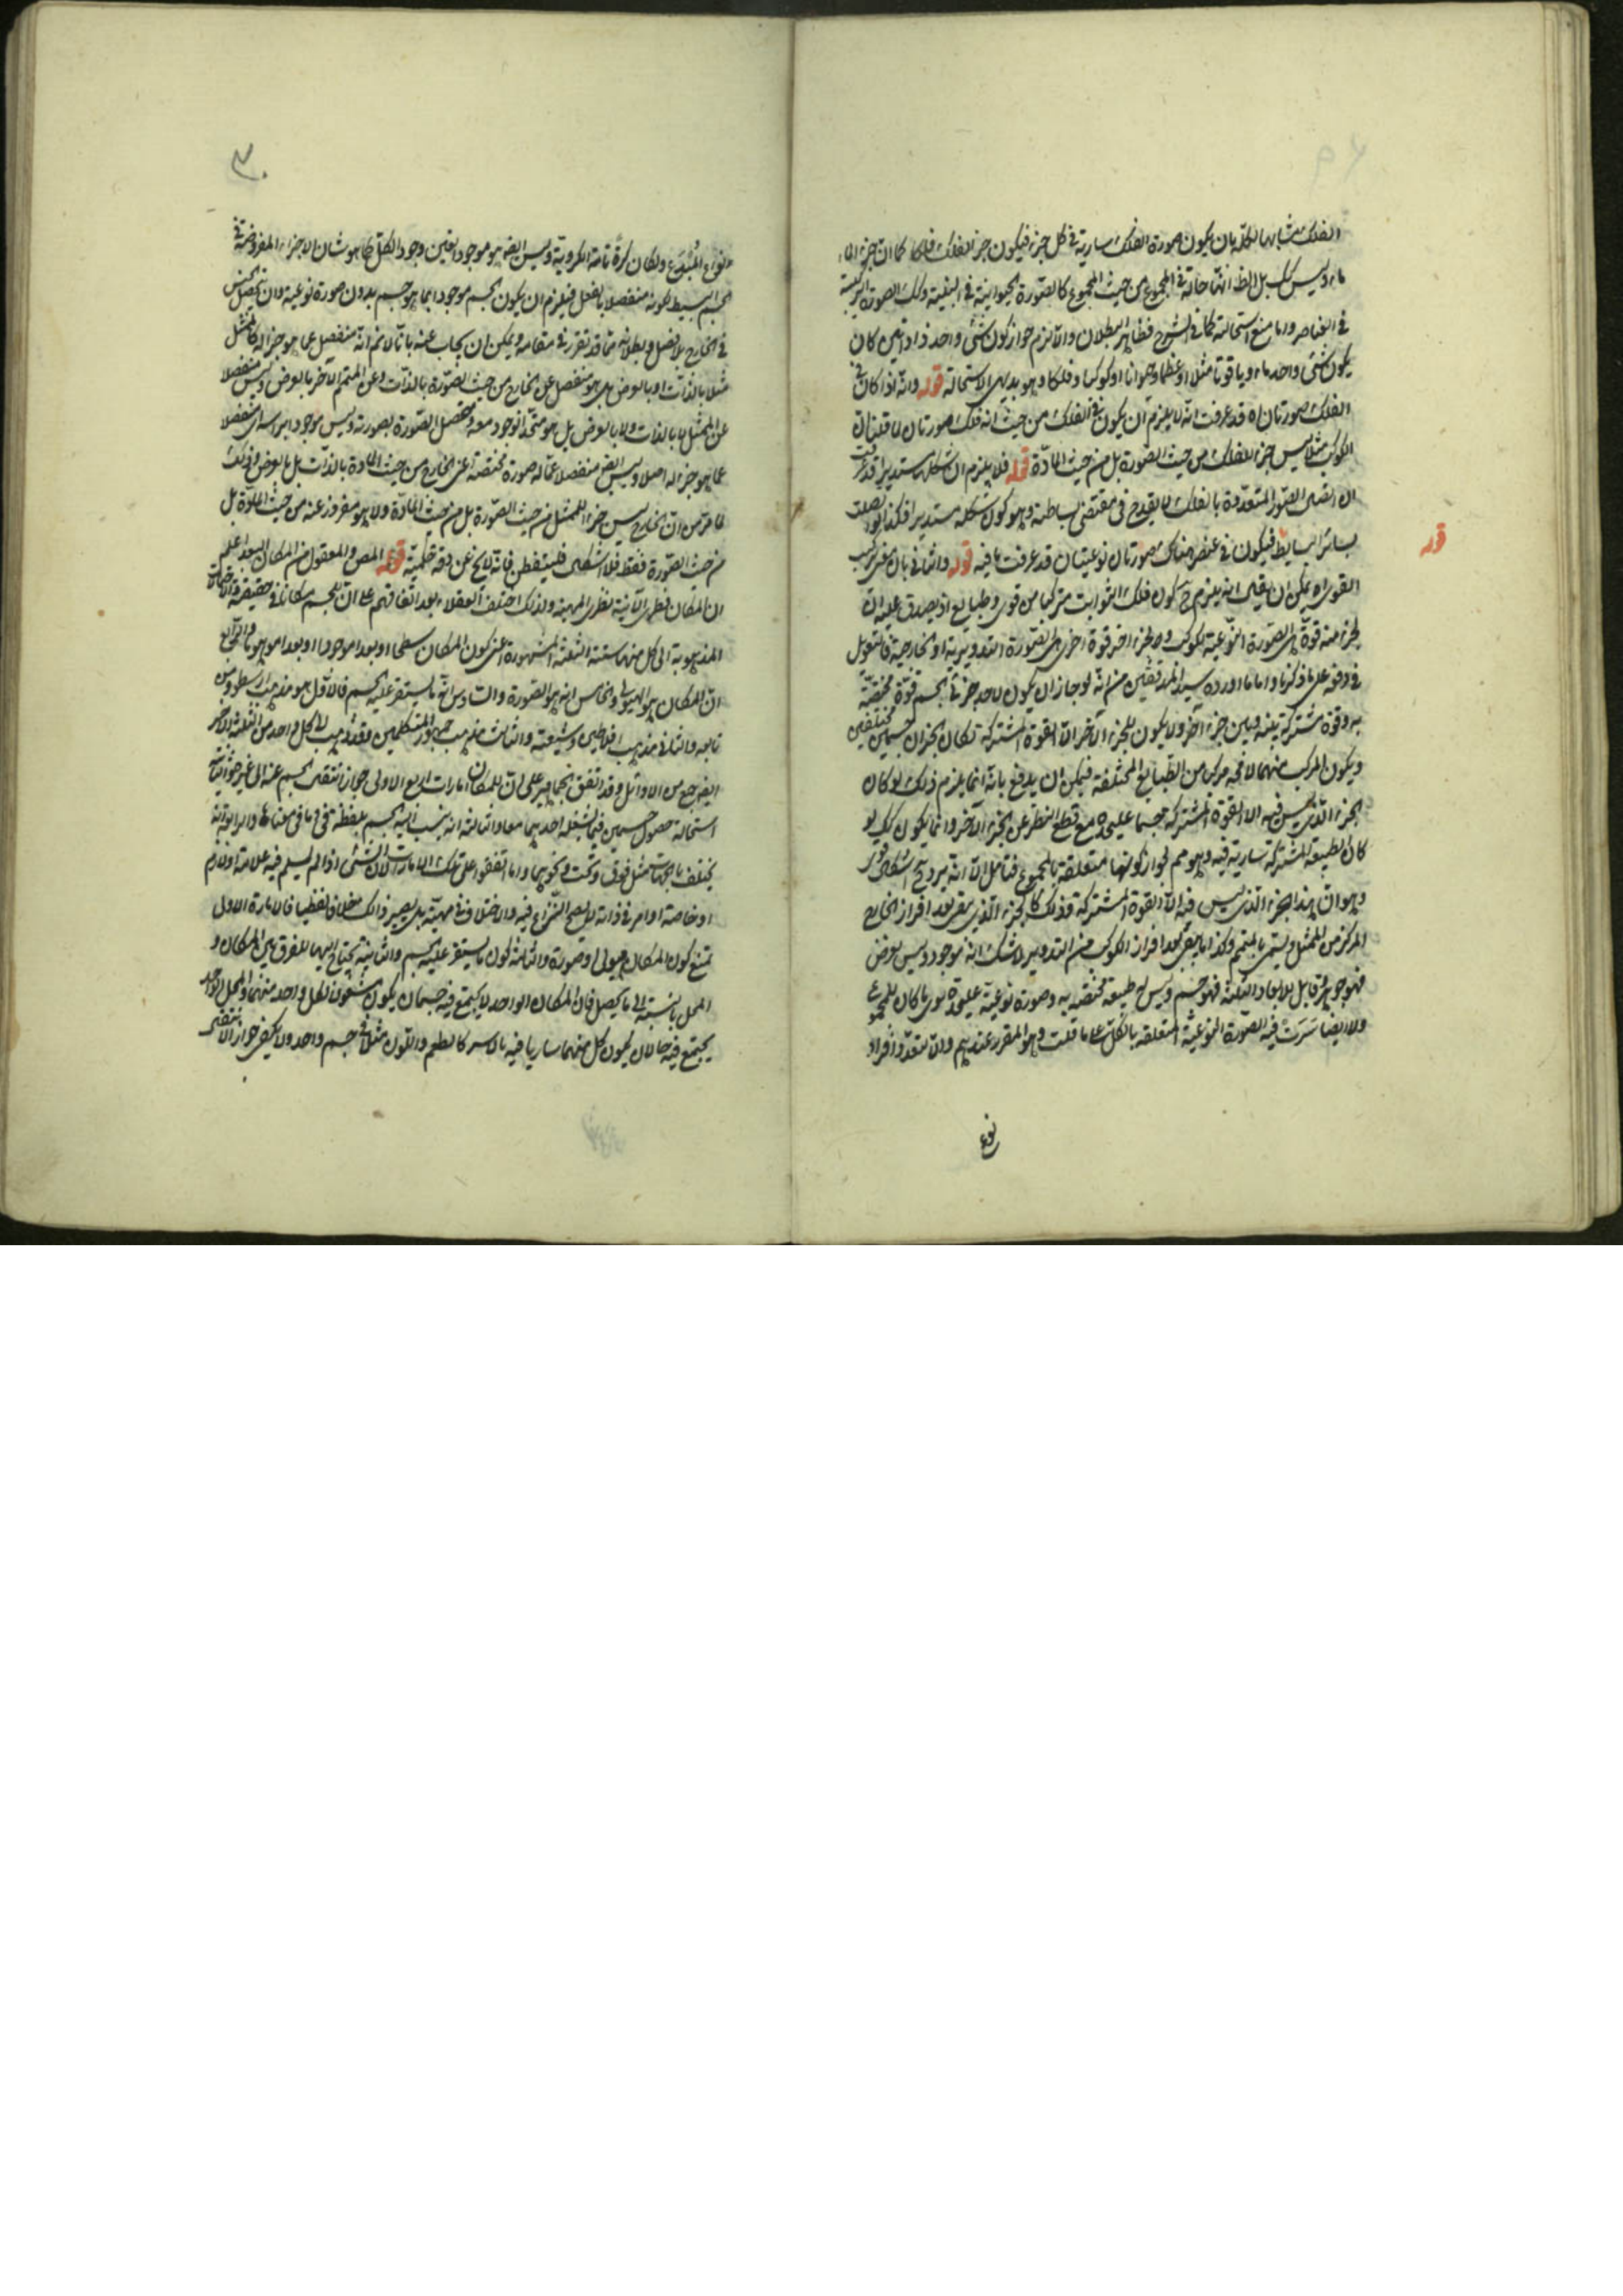 الفلك مشابها لكله بان يكون صورة الفلك سارية في كل جزء فيكون جزء الفلك فلكا كما ان جزء الماء
ماء وليس كك بل الظ انها حالة في المجموع من حيث المجموع كالصورة الحيوانية في البنية وتلك الصورة التركيبية
في العناصر واما منع استحالته كما في الشرح فظاهر البطلان والا لزم جواز كون شئ واحد ذا
يكون شئ واحد ماء وياقوتا مثلا او عظما وحيوانا او كوكبا وفلكا وهو بديهى الاستحالة قوله وانه اذا كان في
الفلك صورتان اه قد عرفت انه لا يلزم ان يكون في الفلك من حيث انه فلك صورتان لما قلنا ان
الكوكب مثلا ليس جزء للفلك من حيث الصورة بل من حيث المادة قوله فلا يلزم ان شكله مستديرا قد عرفت
ان الصور المتعددة بالفلك لا يقدح في مقتضى بساطته وهو كون شكله مستديرا
بسائر البسايط فيكون في عنصر هناك صورتان نوعيتان قد عرفت ما فيه قوله والثاني بان
القوى اه يمكن ان يقال انه يلزم ح كون فلك الثوابت متركبا من قوى وطبايع اذ يصدق عليه ان
لجزء منه قوة هي الصورة النوعية لكوكب ولجزء اخر قوة اخرى هي الصورة التدويرية او الخارجية فالتعويل
في دفعه على ما ذكرنا واما ما اورده سيد المدققين من انه لو جاز ان يكون لاحد جزئى الجسم قوة مختصة
به وقوة مشتركة بينه وبين جزء آخر ولا يكون للجزء الآخر الا القوة المشتركة لكان الجزءان جسمين مختلفين
ويكون المركب منهما لا محه مركبا من الطبايع المختلفة فيمكن ان يدفع بانه انما يلزم ذلك لو كان
الجزء الذى ليس فيه الا القوة المشتركة جسما عليحدة مع قطع النظر عن الجزء الآخر وانما يكون كك لو
كان الطبيعة المشتركة سارية فيه وهو مم لجواز كونها متعلقة بالمجموع فتامل الا انه يرد ح اشكال آخر
وهو ان هذا الجزء الذى ليس فيه الا القوة المشتركة وذلك كالجزء الذى بقى بعد افراز الخارج
المركز من الممثل ويسمى بالمتمم وكذا ما بقى بعد افراز الكوكب من التدوير لا شك انه موجود وليس بعرض
فهو جوهر قابل للابعاد الثلثة فهو جسم وليس له طبيعة مختصة به وصورة نوعية عليحدة سوى ما كان للمجموع
ولا ايضا سرت فيه الصورة النوعية المتعلقة بالكل على ما قلت وهو المقرر عندهم والا تعدد افراد
نوع
قوله
٣٠
النوع المبدع ولكان كرة تامة الكروية وليس ايضا هو موجود بعين وجود الكل كما هو شان الاجزاء المفروضة في
الجسم البسيط لكونه منفصلا بالفعل فيلزم ان يكون جسم موجود بما هو جسم بدون صورة نوعية وان تحصل الجنس
في الخارج بلا فصل وبطلانه مما قد تقرر في مقامه ويمكن ان يجاب عنه بانا لا نم انه منفصل عما هو جزء له كالممثل
مثلا بالذات او بالعرض بلى هو منفصل عن الخارج من حيث الصورة بالذات وعن المتمم الآخر بالعرض وليس منفصلا
عن الممثل لا بالذات ولا بالعرض بل هو متحد الوجود معه ومتحصل الصورة بصورته وليس موجودا براسه اى منفصلا
عما هو جزء له اصلا وليس ايضا منفصلا عما له صورة مختصة اعنى الخارج من حيث المادة بالذات بل بالعرض وذلك
لما مر من ان الخارج ليس جزء للممثل من حيث الصورة بل من حيث المادة ولا هو مفروز عنه من حيث المادة بل
من حيث الصورة فقط فلا اشكال فليتفطن فانه لا يخ عن دقة حكمية قوله المص والمعقول من المكان البعد اعلم
ان المكان فطرى الآنية نظرى المهية ولذلك اختلف العقلاء بعد اتفاقهم على ان للجسم مكانا في حقيقة
المذهوبة الى كل منها ستة الثلثة المشهورة اعنى كون المكان سطحا او بعدا موجودا او بعدا موهوما والرابع
ان المكان هو الهيولى والخامس انه هو الصورة والسادس انه ما يستقر عليه الجسم فالاول هو مذهب ارسطو ومن
تابعه والثانى مذهب افلاطون وشيعته والثالث مذهب جمهور المتكلمين وقد ذهب الى كل واحد من الثلثة الاخر
ايضا جمع من الاوائل وقد اتفق الجماهير على ان للمكان امارات اربع الاولى جواز انتقال الجسم عنه الى غيره والثانية
استحالة حصول جسمين فيما يشغله احدهما معا والثالثة انه ينسب اليه الجسم بلفظة في او ما في معناها والرابعة انه
يختلف بالجهات مثل فوق وتحت ونحوهما وانما اتفقوا على تلك الامارات لان الشئ اذا لم يسلم فيه علامة ولازم
او خاصة او امر في ذاته لا يصح النزاع فيه والاختلاف في مهيته بل يصير ذلك خلافا لفظيا فالامارة الاولى
تمنع كون المكان هيولى او صورة والثالثة كونه ما يستقر عليه الجسم والثانية يحتاج اليها للفرق بين المكان و
المحل بالنسبة الى ما يحصل فان المكان الواحد لا يجتمع فيه جسمان يكون مشغولا بكل واحد منهما والمحل الواحد
يجتمع فيه حالان يكون كل منهما ساريا فيه بالاسر كالطعم واللون مثلا في جسم واحد ولا يكفى جواز الانتقال